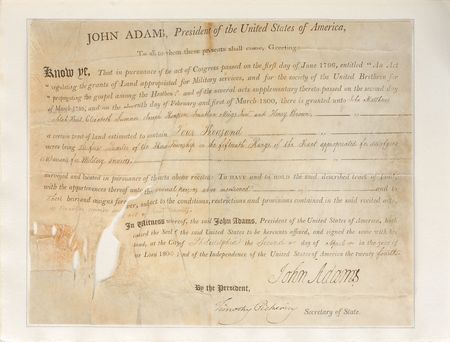 JOHN ADAMS, President of the United States of America,
To all to whom these presents shall come, Greeting:
Know ye, That in pursuance of the act of Congress passed on the first day of June 1796, entitled "An Act
"regulating the grants of Land appropriated for Military services, and for the society of the United Brethren for
"propagating the gospel among the Heathen;" and of the several acts supplementary thereto passed on the second day
of March 1799, and on the eleventh day of February and first of March 1800, there is granted unto John Matthews
Elizabeth Jonathan Meigs and Henry Brown,
a certain tract of land estimated to contain Four Thousand
acres being quarter of the Township in the fifteenth Range of the Tract appropriated for satisfying
Warrants for Military services
surveyed and located in pursuance of the acts above recited: To HAVE and to HOLD the said described tract of land,
with the appurtenances thereof unto the several persons above mentioned and to
their heirs and assigns forever, subject to the conditions, restrictions and provisions contained in the said recited acts,
In Witness whereof, the said JOHN ADAMS, President of the United States of America, hath
caused the Seal of the said United States to be hereunto affixed, and signed the same with his
hand, at the City of Philadelphia the Second day of April in the year of
our Lord 1800; and of the Independence of the United States of America the twenty fourth.
John Adams
By the President,
Timothy Pickering Secretary of State.